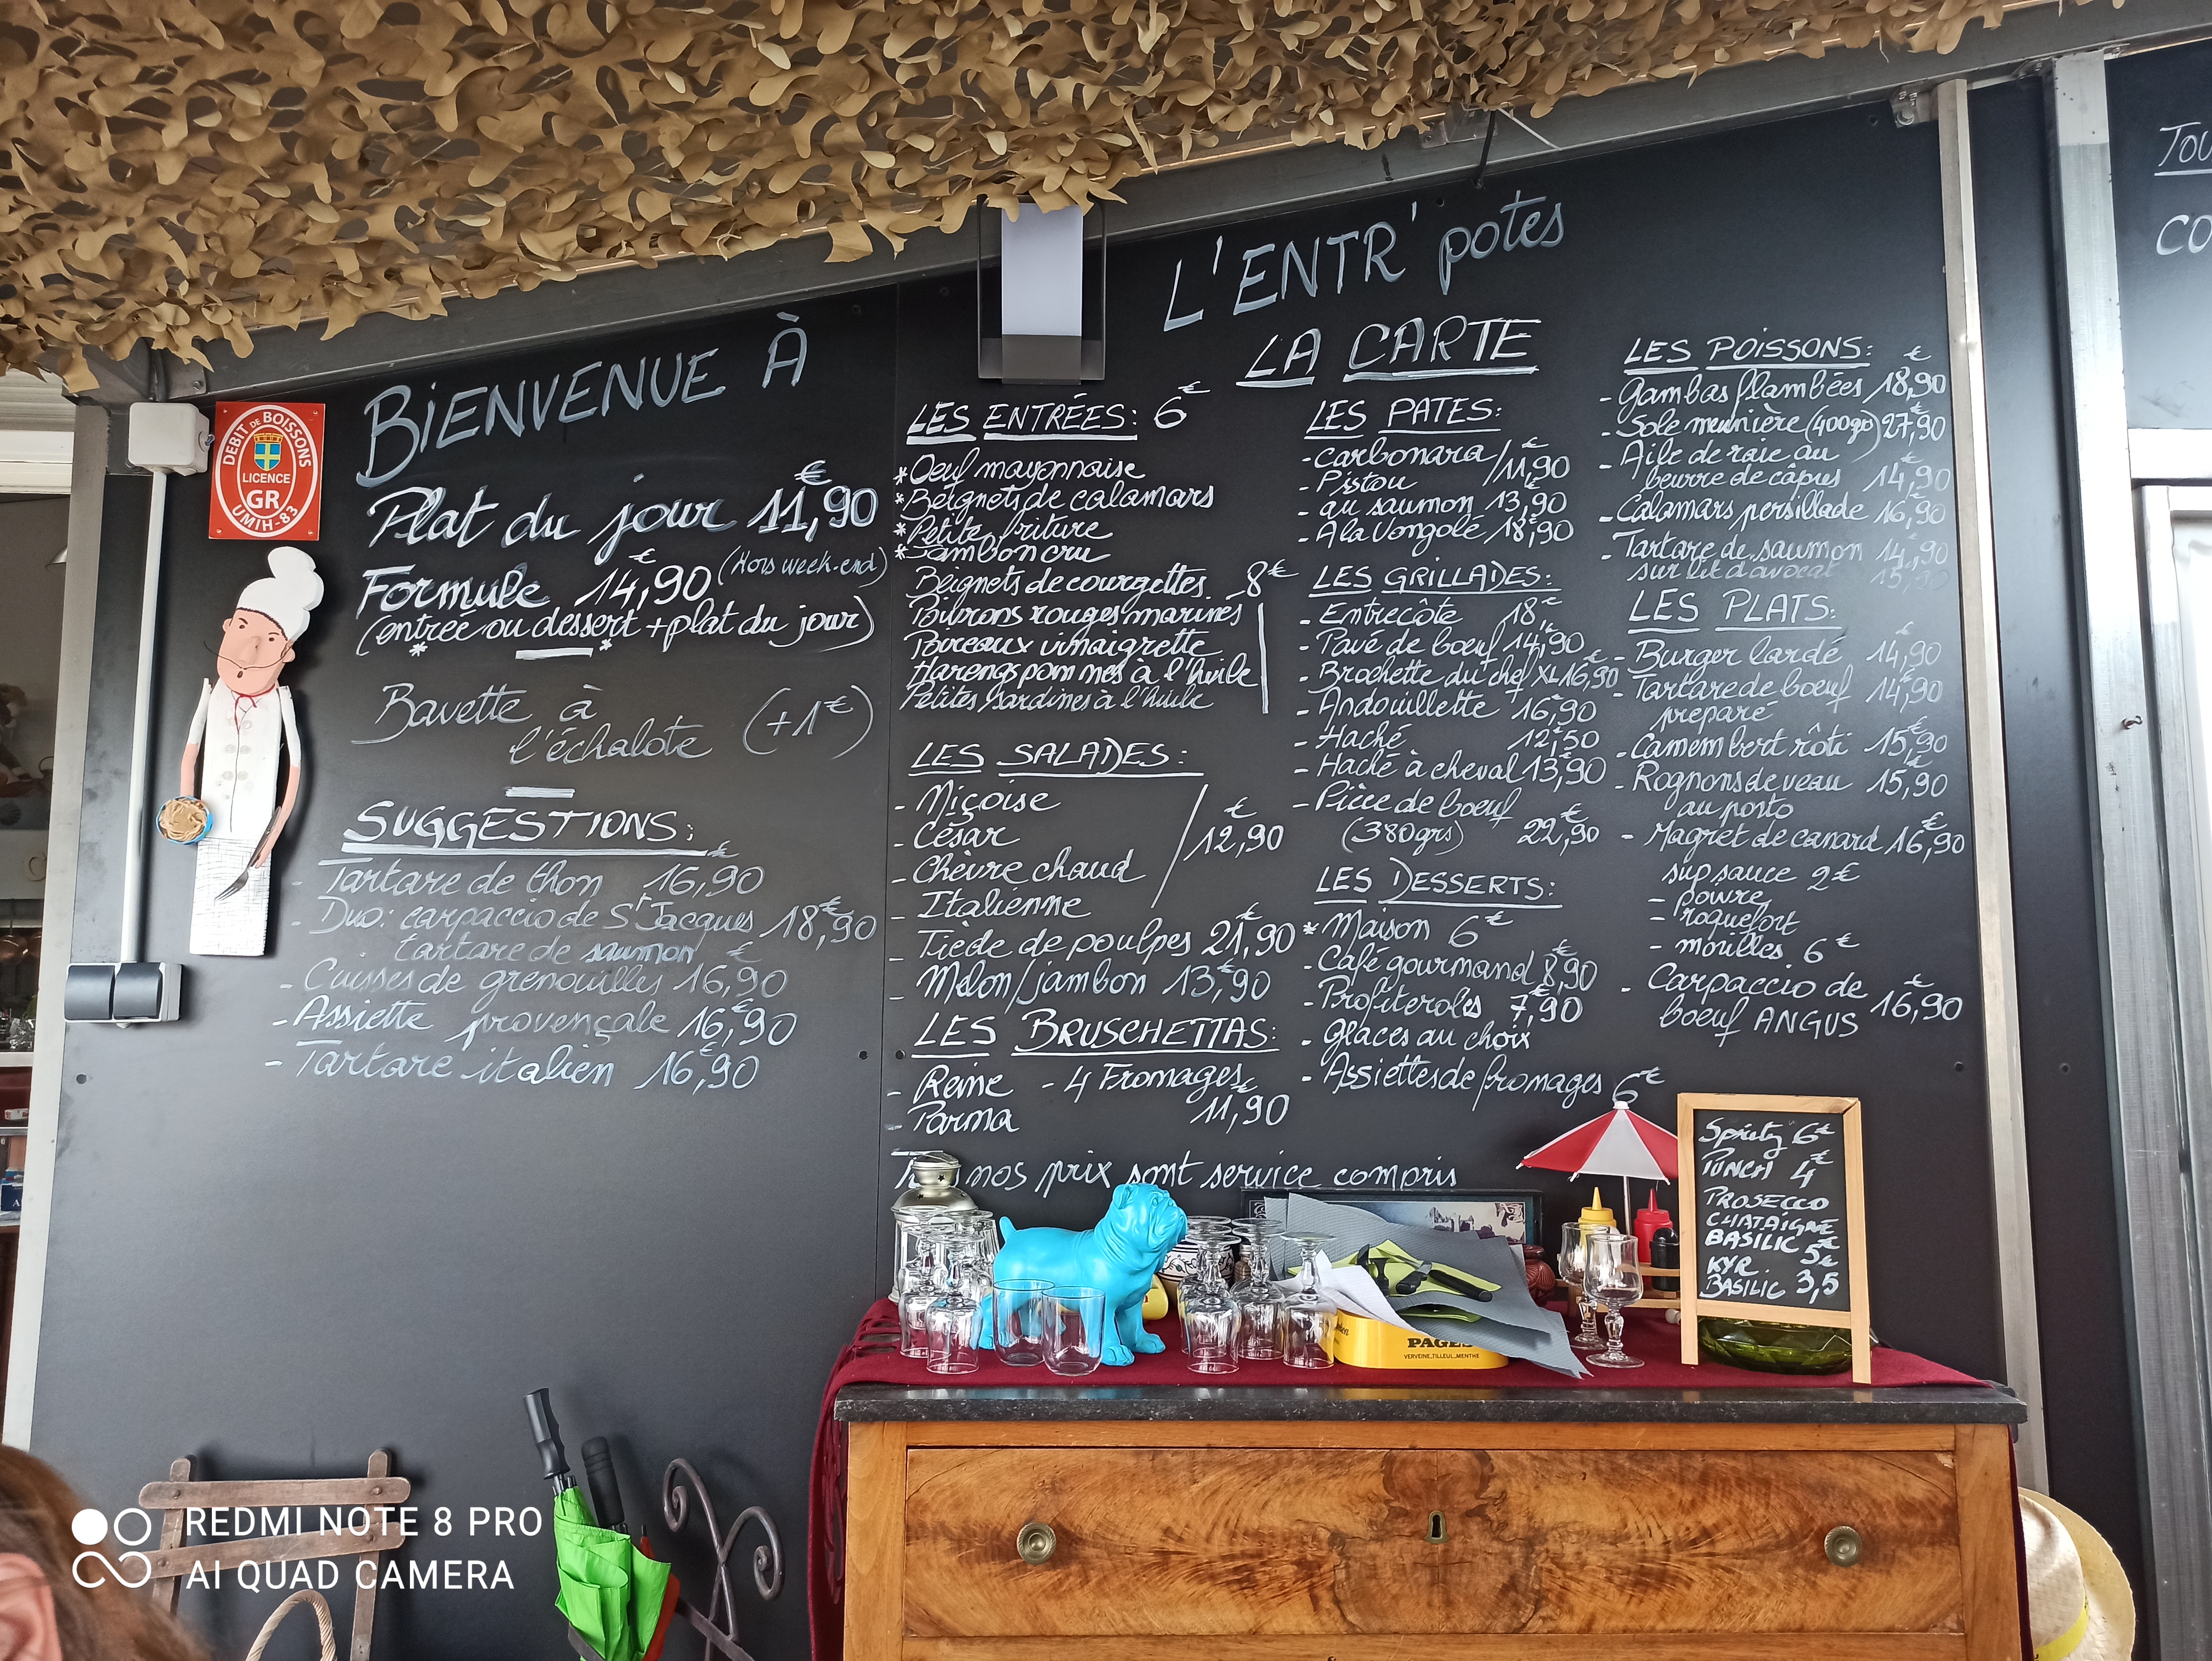 BIENVENUE À
Plat du jour 11,90€
(Hors week-end)
Formule 14,90€
(entrée ou dessert + plat du jour)
* *
Bavette à
l'échalote (+1€)
SUGGESTIONS:
- Tartare de thon 16,90€
- Duo: carpaccio de St Jacques 18,90€
tartare de saumon
- Cuisses de grenouilles 16,90€
- Assiette provençale 16,90€
- Tartare italien 16,90€
L'ENTR'potes
LA CARTE
LES ENTRÉES: 6€
* Oeuf mayonnaise
* Beignets de calamars
* Petite friture
* Jambon cru
Beignets de courgettes 8€
Poivrons rouges marinés
Poireaux vinaigrette
Harengs pommes à l'huile
Petites sardines à l'huile
LES SALADES:
- Niçoise
- César
12,90€
- Chèvre chaud
- Italienne
- Tiède de poulpes 21,90€
- Melon/jambon 13,90€
LES BRUSCHETTAS:
- Reine - 4 Fromages
- Parma 11,90€
nos prix sont service compris
LES PATES:
- Carbonara
- Pistou 11,90€
- au saumon 13,90€
- A la Vongole 18,90€
LES GRILLADES:
- Entrecôte 18,€
- Pavé de boeuf 14,90€
- Brochette du chef XL 16,90€
- Andouillette 16,90
- Haché 12,50€
- Haché à cheval 13,90€
- Pièce de boeuf
(380grs) 22,90€
LES DESSERTS:
* Maison 6€
- Café gourmand 8,90€
- Profiteroles 7,90€
- Glaces au choix
- Assiettes de fromages 6€
LES POISSONS: €
- Gambas flambées 18,90
- Sole meunière (400gr) 27,90€
- Aile de raie au
beurre de câpres 14,90€
- Calamars persillade 16,90€
- Tartare de saumon 14,90€
sur lit d'avocat 15,90
LES PLATS:
- Burger lardé 14,90€
- Tartare de boeuf 14,90€
preparé
- Camembert rôti 15,90€
- Rognons de veau 15,90€
au porto
- Magret de canard 16,90€
sup sauce 2€
- poivre
- roquefort
- morilles 6€
- Carpaccio de
boeuf ANGUS 16,90€
Spritz 6€
PUNCH 4€
PROSECCO
CHATAIGNE
BASILIC 5€
KYR. 5€
BASILIC 3,5
TOU
CO
DEBIT DE BOISSONS
LICENCE
GR
UMIH-83
PAGES
VERVEINE, TILLEUL, MENTHE
REDMI NOTE 8 PRO
AI QUAD CAMERA